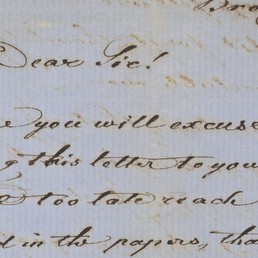 Bro
Dear Sir!
you will excuse
this letter to you
too late reach
in the papers, tha